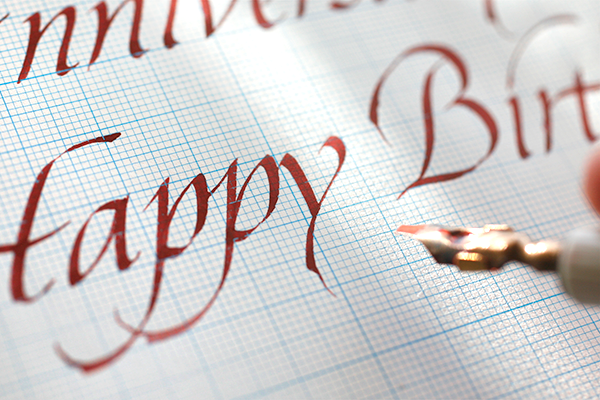 nniversa
Happy Birt